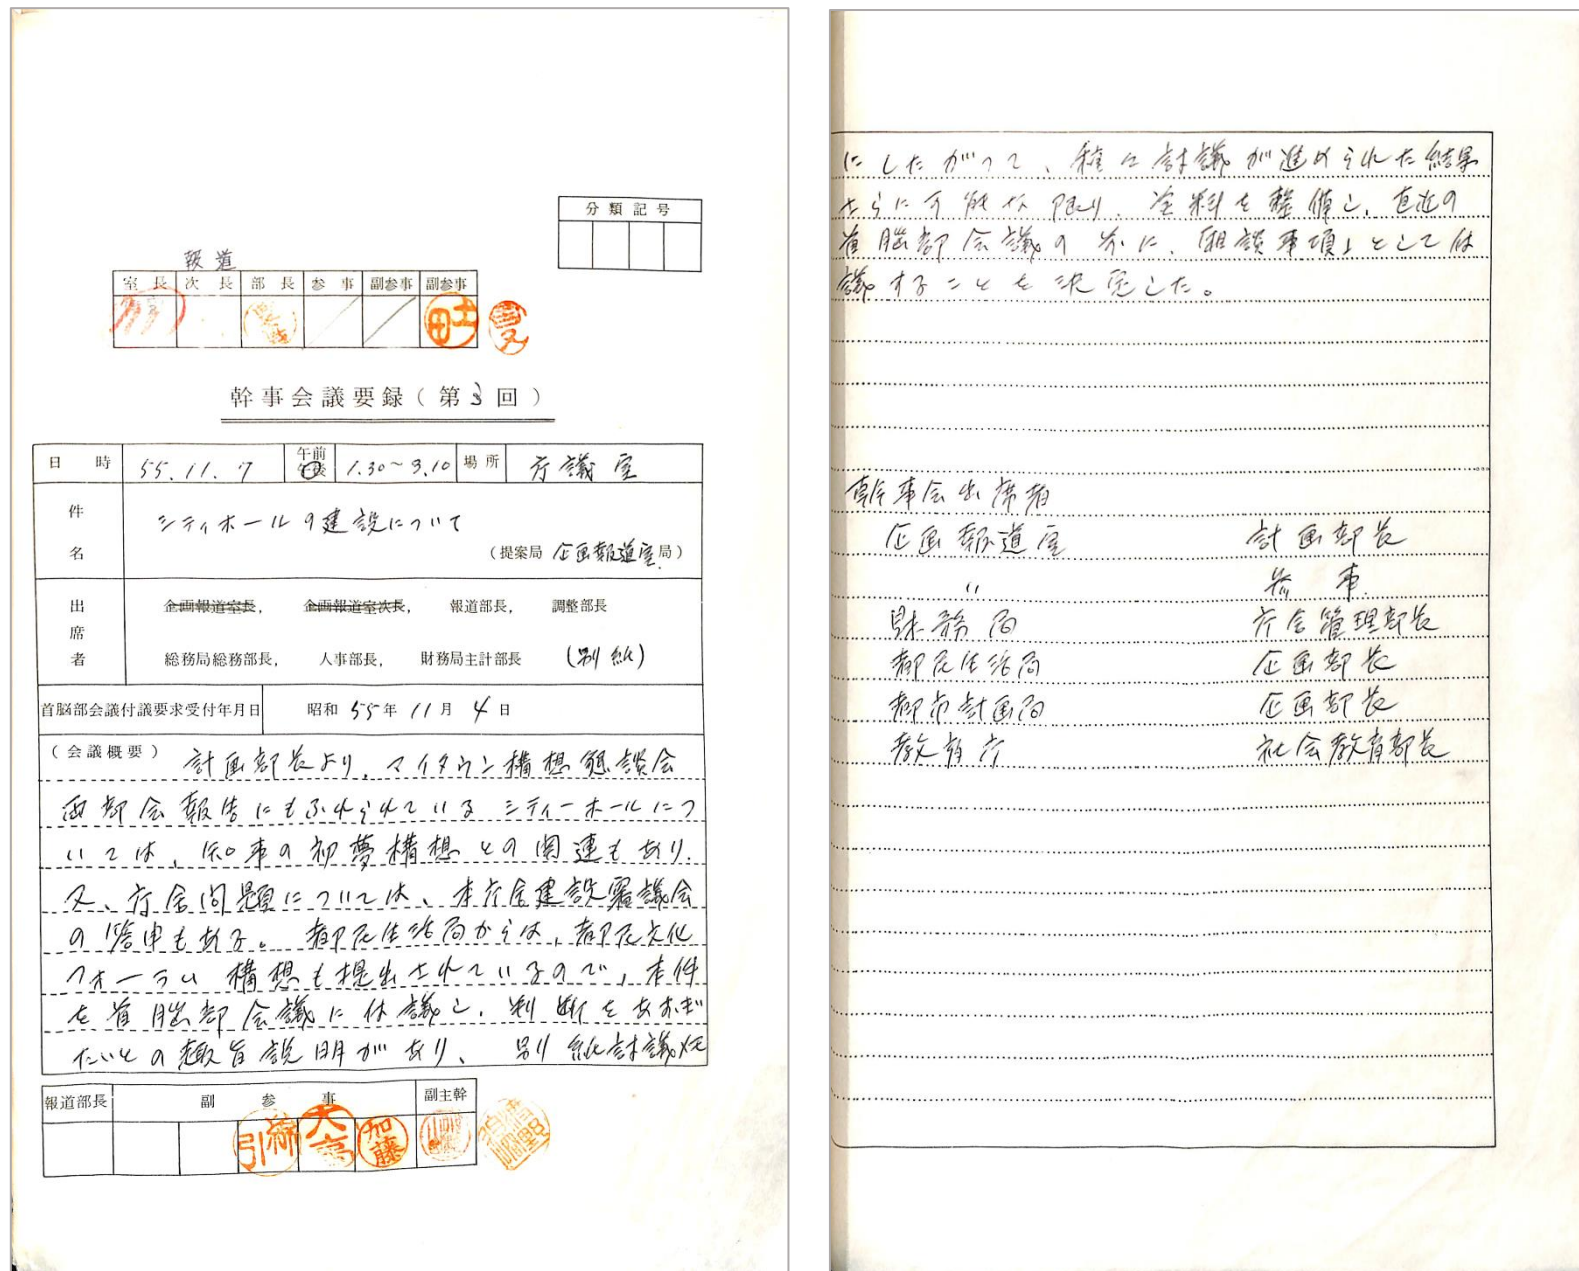 分類記号
報道
室長 次長 部長 参事 副参事 副参事
土田
幹事会議要録(第3回)
日時 55.11.7 午前 午後 1.30～3.10 場所 庁議室
件名 シティホールの建設について
(提案局 企画報道室局)
出席者 企画報道室長, 企画報道室次長, 報道部長, 調整部長
総務局総務部長, 人事部長, 財務局主計部長 (別紙)
首脳部会議付議要求受付年月日 昭和55年11月4日
(会議概要) 計画部長より、マイタウン構想懇談会
両部会報告にもふれられているシティーホールにつ
いては、知事の初夢構想との関連もあり、
又、庁舎問題については、本庁舎建設審議会
の答申もある。都民生活局からは、都民文化
フォーラム構想も提出されているので、本件
を首脳部会議に付議し、判断をあおぎ
たいとの趣旨説明があり、別紙討議
報道部長 副参事 副主幹
大高
加藤
にしたがって、種々討議が進められた結果
さらに可能な限り、資料を整備し、直近の
首脳部会議の前に、「相談事項」として付
議することを決定した。
幹事会出席者
企画報道室 計画部長
〃 参事
財務局 庁舎管理部長
都民生活局 企画部長
都市計画局 企画部長
教育庁 社会教育部長